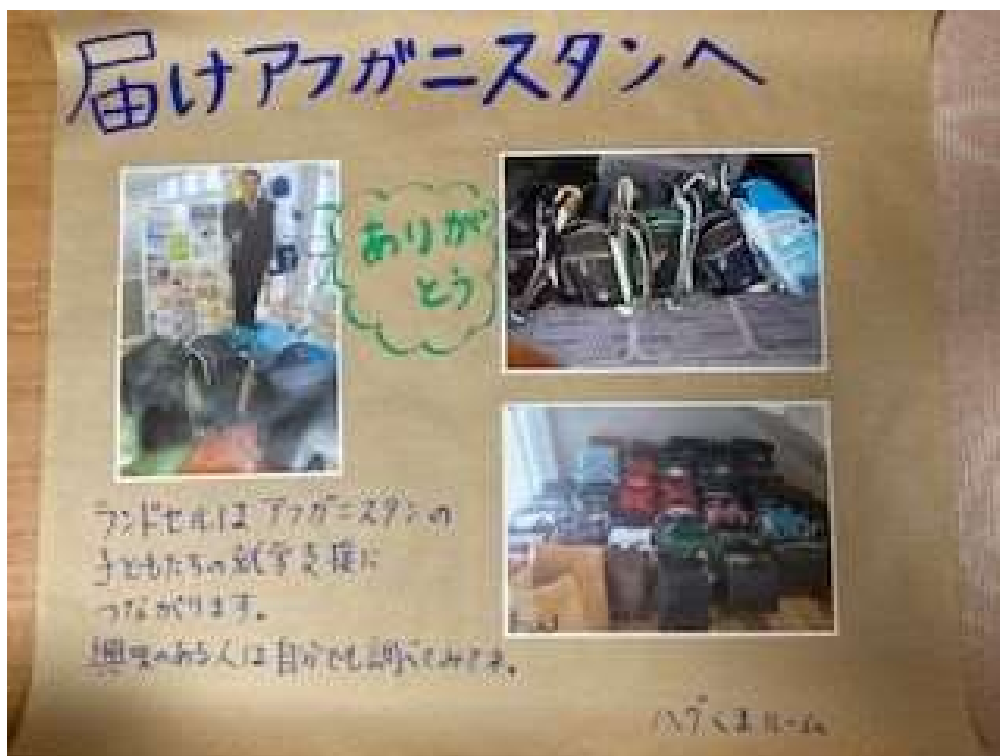 届けアフガニスタンへ
ありが
とう
ランドセルはアフガニスタンの
子どもたちの就学支援に
つながります。
興味のある人は自分でも調べてみてネ。
ハグくまルーム